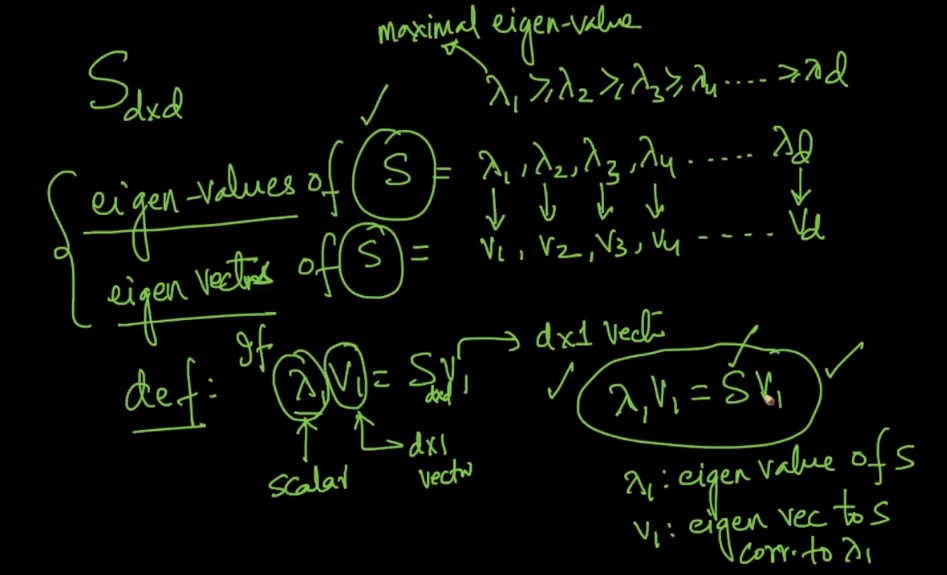 maximal eigen-value
S dxd
λ₁ ≥ λ₂ ≥ λ₃ ≥ λ₄ .... ≥ λd
eigen-values of S = λ₁, λ₂, λ₃, λ₄ ..... λd
eigen vectors of S = V₁, V₂, V₃, V₄ ---- V d
def: If λ₁ V₁ = S dxd V₁
dx1 vect
λ₁ V₁ = S V₁
scalar
dx1
vector
λ₁: eigen value of S
V₁: eigen vec to S
corr. to λ₁